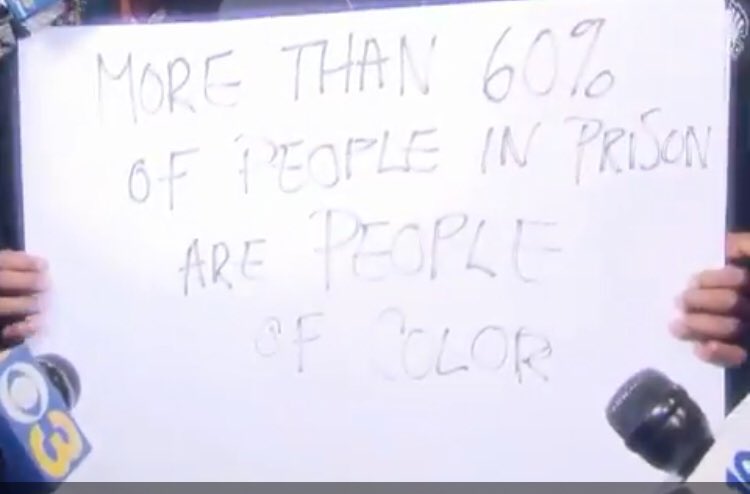 MORE THAN 60%
OF PEOPLE IN PRISON
ARE PEOPLE
OF COLOR
3